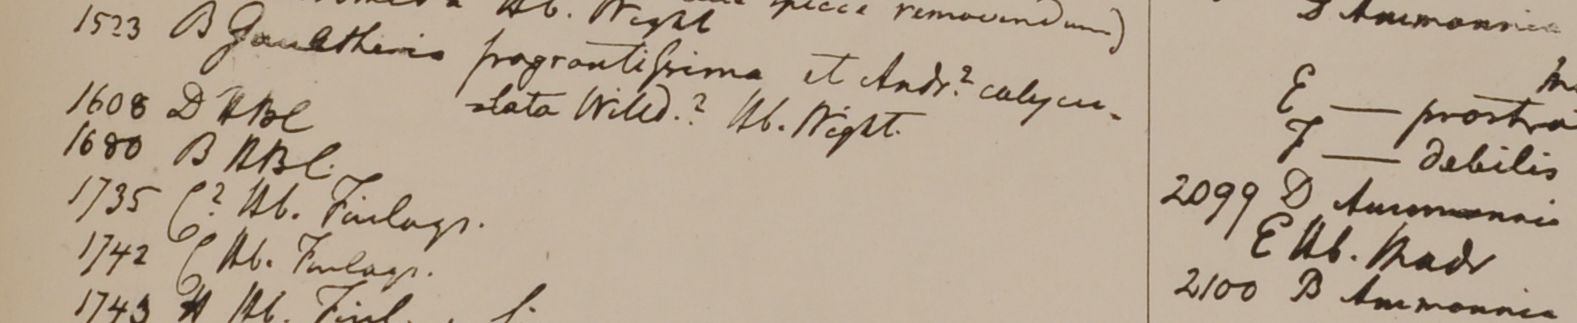 Hb. Wight
specie removendum)
1523 B Gaultheria fragrantissima et Andr.? calycu-
lata Willd.? Hb. Wight.
1608 D HBC
1680 B HBC.
1735 C? Hb. Finlays.
1742 C Hb. Finlays.
1743 H Hb. Finl.
D Ammannia
E — prostra
F — debilis
2099 D Ammannia
E Hb. Madr
2100 B Ammannia